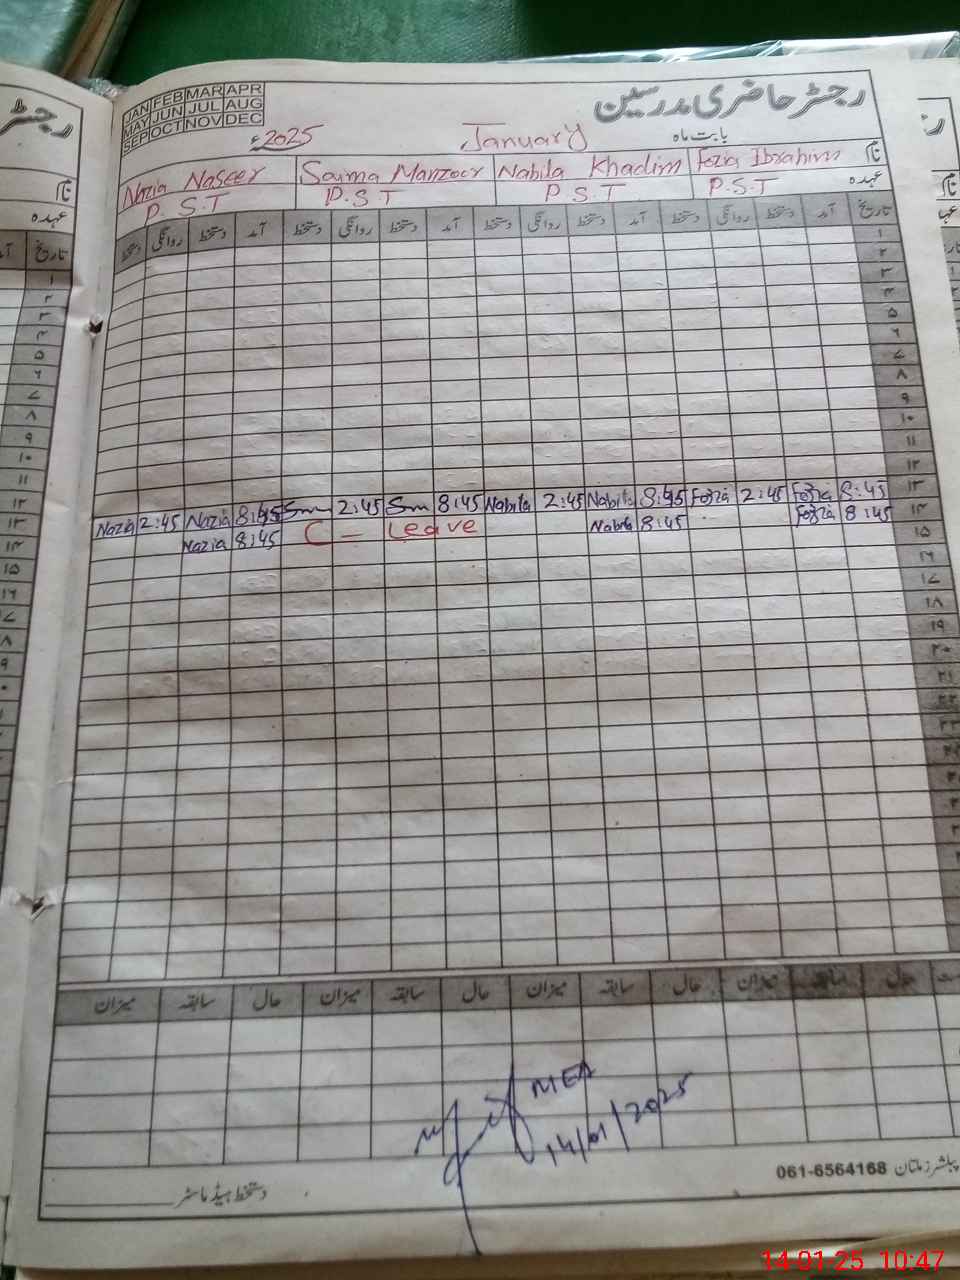 رجسٹر حاضری مدرسین
JAN FEB MAR APR
MAY JUN JUL AUG
SEP OCT NOV DEC
بابت ماہ January 2025ء
نام Fozia Ibrahim Nabila Khadim Saima Manzoor Nazia Naseer
عہدہ P.S.T P.S.T P.S.T P.S.T
تاریخ آمد دستخط روانگی دستخط آمد دستخط روانگی دستخط آمد دستخط روانگی دستخط آمد دستخط روانگی دستخط
۱
۲
۳
۴
۵
۶
۷
۸
۹
۱۰
۱۱
۱۲
Nazia 2:45 Nazia 8:45 Sm 2:45 Sm 8:45 Nabila 2:45 Nabila 8:45 Fozia 2:45 Fozia 8:45 ۱۳
Nazia 8:45 C - Leave Nabila 8:45 Fozia 8:45
۱۵
۱۶
۱۷
۱۸
۱۹
۲۰
۲۱
۲۲
۲۳
حال سابقہ میزان حال سابقہ میزان حال سابقہ میزان حال سابقہ میزان
MEA
14/01/2025
پبلشرز ملتان 061-6564168
دستخط ہیڈ ماسٹر
14-01-25 10:47
رجسٹر
نام
عہدہ
تاریخ
۱
۲
۳
۴
۵
۶
۷
۸
۹
۱۰
۱۱
۱۲
۱۳
۱۴
۱۵
۱۶